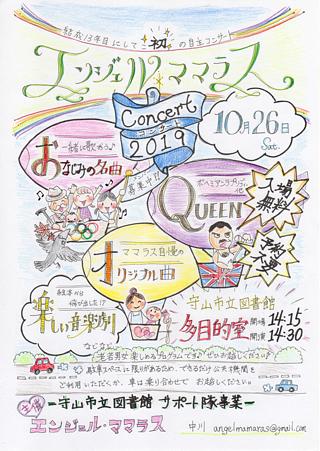 結成13年目にして初の自主コンサート
エンジェル♪ママラス
Concert
コンサート
2019
10月26日
Sat.
一緒に歌おう♪
おなじみの名曲
募集中!!
ボヘミアンラプソディ
QUEEN
入場
無料
予約
不要
ママラス自慢の
オリジナル曲
何が出した!?
楽しい音楽劇
などなど
守山市立図書館
多目的室
開場 14:15
開演 14:30
老若男女楽しめるプログラムです♪ぜひお越しください♪
駐車スペースに限りがあるため、できるだけ公共交通機関を
ご利用いただくか、車は乗り合わせでお越しください。
主催
-守山市立図書館 サポート隊事業-
エンジェル・ママラス
中川 angelmamaras@gmail.com